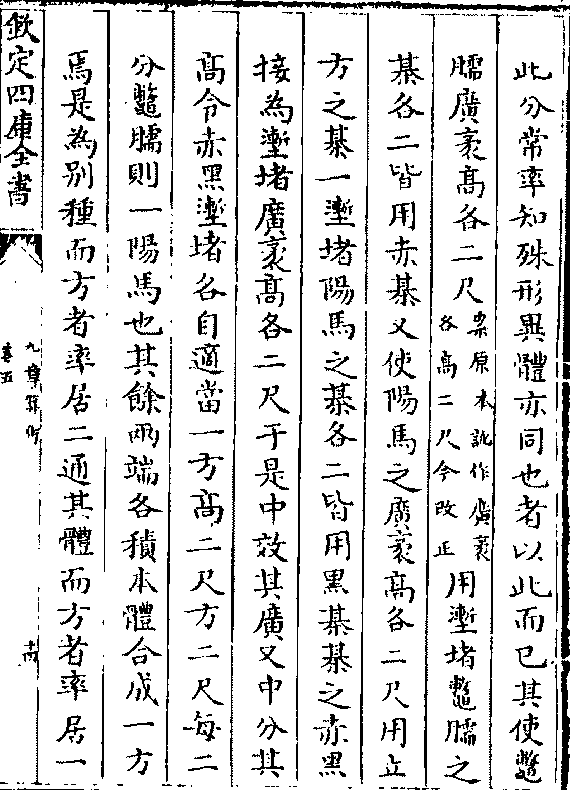 此分常率知殊形異體亦同也者以此而已其使鼈
臑廣袤髙各二尺案原本訛作廣袤各髙二尺今改正用壍堵鼈臑之
棊各二皆用赤棊又使陽馬之廣袤髙各二尺用立
方之棊一壍堵陽馬之棊各二皆用黑棊棊之赤黑
接為壍堵廣袤髙各二尺于是中效其廣又中分其
髙令赤黑壍堵各自適當一方髙二尺方二尺每二
分鼈臑則一陽馬也其餘兩端各積本體合成一方
焉是為别種而方者率居二通其體而方者率居一
欽定四庫全書
九章算術
卷五
十四